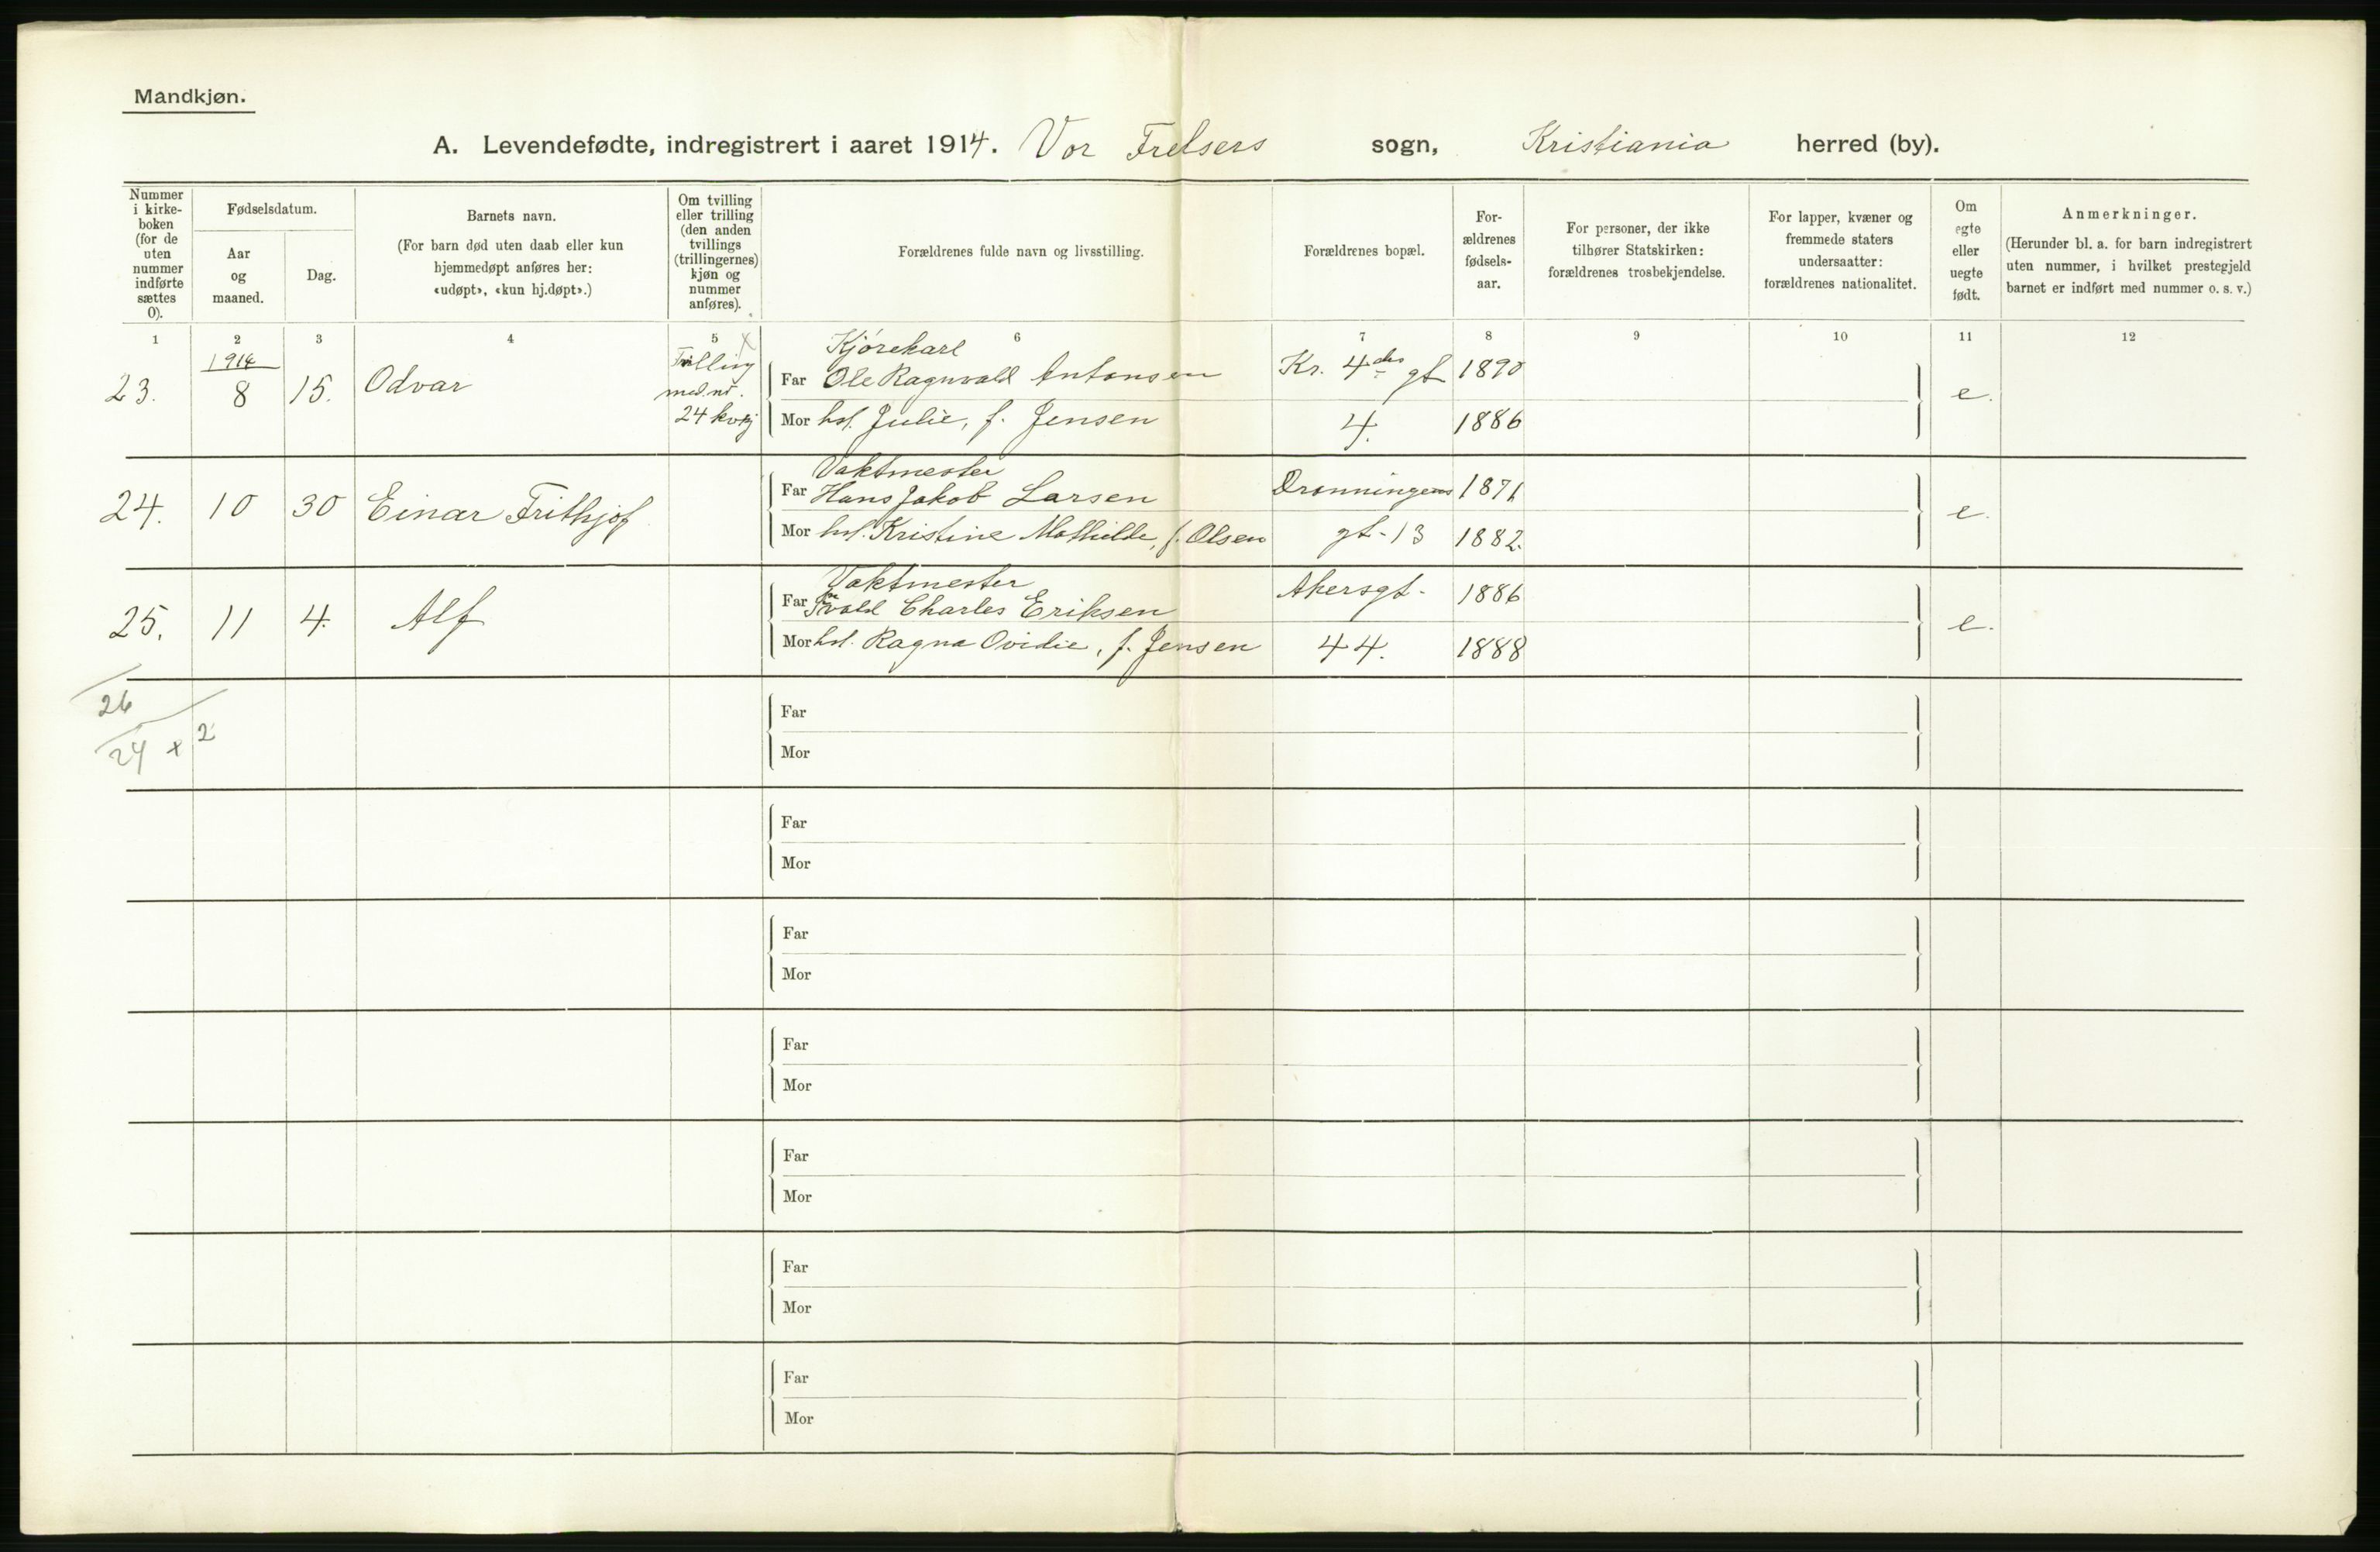 Mandkjøn.
A. Levendefødte, indregistrert i aaret 1914. Vor Frelsers sogn, Kristiania herred (by).
Nummer
i kirke-
boken
(for de
uten
nummer
indførte
sættes
0).
Fødselsdatum.
Aar
og
maaned.
Dag.
Barnets navn.
(For barn død uten daab eller kun
hjemmedøpt anføres her:
«udøpt», «kun hj.døpt».)
Om tvilling
eller trilling
(den anden
tvillings
(trillingernes)
kjøn og
nummer
anføres).
Forældrenes fulde navn og livsstilling.
Forældrenes bopæl.
For-
ældrenes
fødsels-
aar.
For personer, der ikke
tilhører Statskirken:
forældrenes trosbekjendelse.
For lapper, kvæner og
fremmede staters
undersaatter:
forældrenes nationalitet.
Om
egte
eller
uegte
født.
Anmerkninger.
(Herunder bl. a. for barn indregistrert
uten nummer, i hvilket prestegjeld
barnet er indført med nummer o. s. v.)
1 2 3 4 5 6 7 8 9 10 11 12
1914
23. 8 15. Odvar
med nr.
24 kvkj
Kjørekarl
Far Ole Ragnvald Antonsen Kr. 4des gt 1890
Mor hst. Julie, f. Jensen 4. 1886
e.
24. 10 30 Einar Frithjof
Vaktmester
Far Hans Jakob Larsen Dronningens 1871
Mor hst. Kristine Mathilde, f. Olsen gt. 13 1882.
e.
25. 11 4. Alf
Vaktmester
Far Charles Eriksen Akersgt. 1886
Mor hst. Ragna Ovidie, f. Jensen 44. 1888
e.
26
24 + 2
Far
Mor
Far
Mor
Far
Mor
Far
Mor
Far
Mor
Far
Mor
Far
Mor